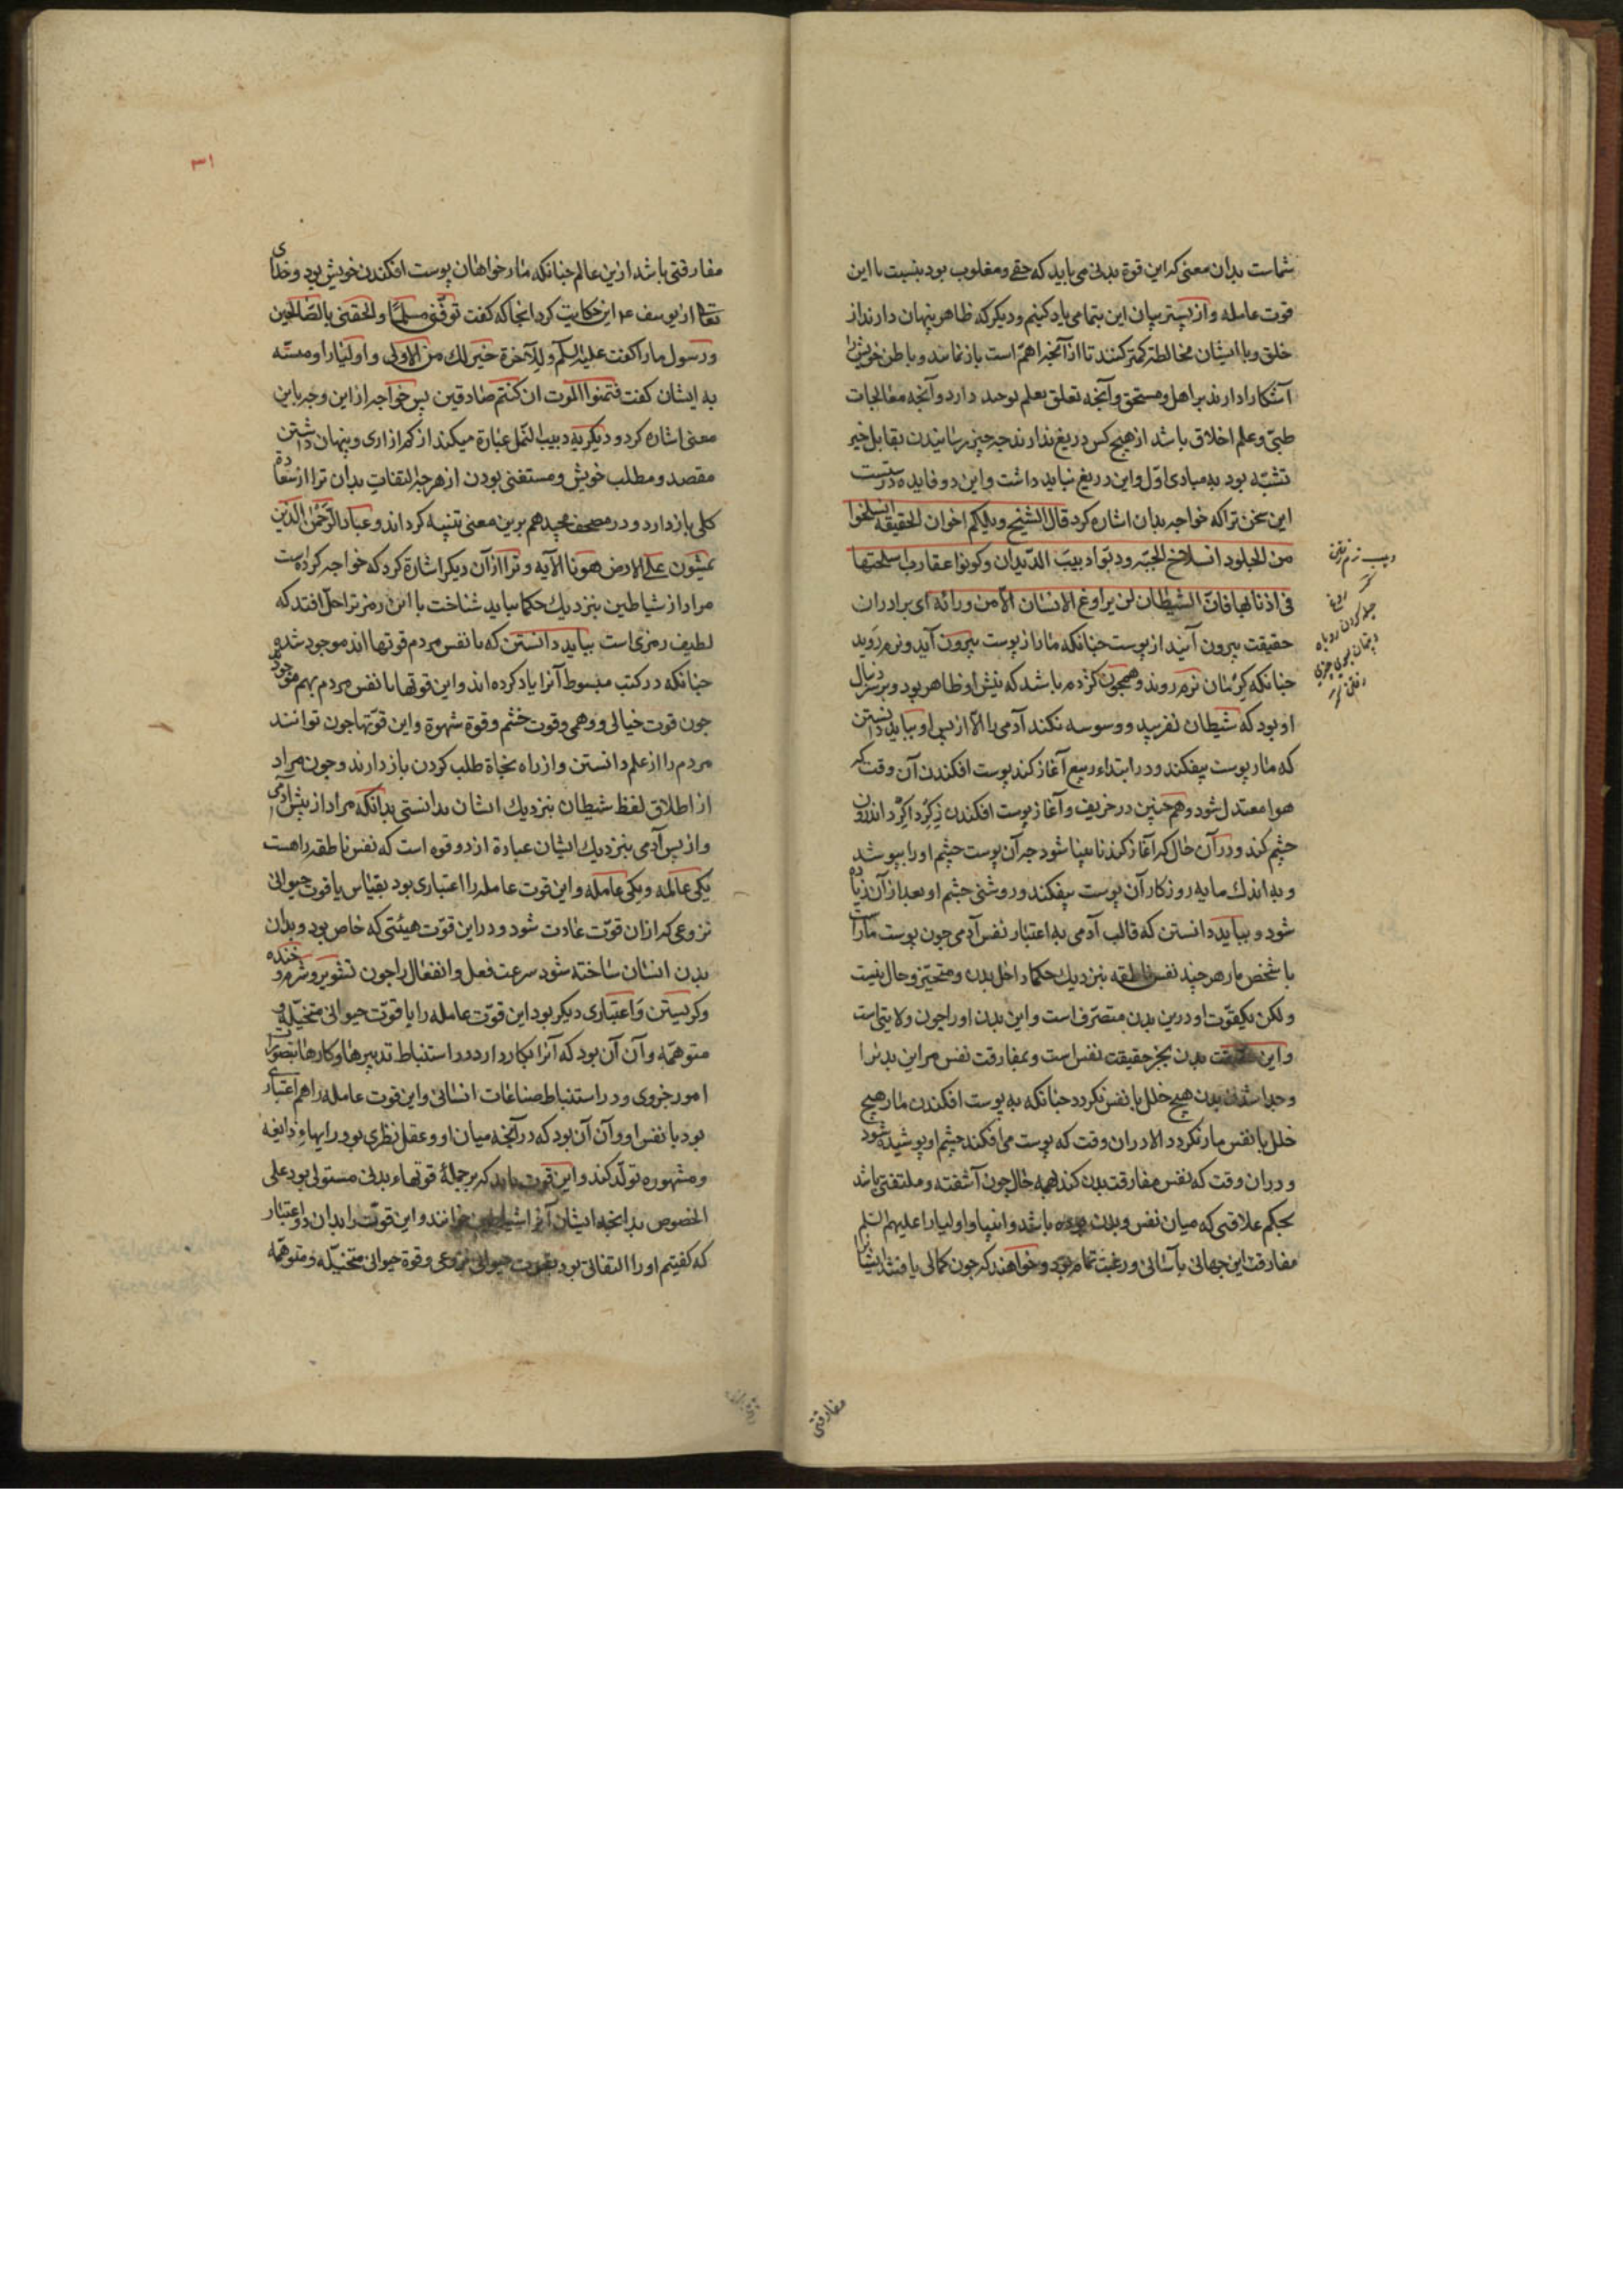 شماست بدان معنی که این قوة بدنی می باید که حقیر و مغلوب بود بنسبت با این
قوت عامله و از پستر بیان این بتمامی یاد کنیم و دیگر که ظاهر پنهان دارند از
خلق و با ایشان مخالطت کمتر کنند تا از آنچه اهم است باز نمانند و باطن خویش را
آشکارا دارند بر اهل و مستحق و آنچه تعلق بعلم توحید دارد و آنچه معالجات
طبی و علم اخلاق باشد از هیچ کس دریغ ندارند چه چیز رسانیدن بقابل خیر
تشبه بود به مبادی اول و این دریغ نباید داشت و این دو فایده درست
این سخن تراکه خواجه بدان اشاره کرد قال الشیخ ویلکم اخوان الحقیقه انسلخوا
من الجلود انسلاخ الحیه و دبوا دبیب الدیدان وکونوا عقارب اسلحتها
فی اذنابها فان الشیطان لن یراوغ الانسان الا من ورائه ای برادران
حقیقت بیرون آیند از پوست چنانکه مار از پوست بیرون آید و نرم روید
چنانکه کرمان نرم روند و همچون کژدم باشد که نیش او ظاهر بود و بر دنبال
او بود که شیطان نفریبد و وسوسه نکند آدمی را الا از پس او و بباید دانستن
که مار پوست بیفکند و در ابتداء ربیع آغاز کند پوست افکندن آن وقت که
هوا معتدل شود و همچنین در خریف و آغاز پوست افکندن ز گرداگرد
چشم کند و در آن حال که آغاز کند نابینا شود چه آن پوست چشم او را بپوشد
و به اندک مایه روزکار آن پوست بیفکند و روشنی چشم او بعد از آن زیاده
شود و بباید دانستن که قالب آدمی به اعتبار نفس آدمی چون پوست مار است
با شخص مار هر چند نفس ناطقه بنزدیک حکما داخل بدن و متحیز و حال نیست
ولکن بیک قوت او درین بدن متصرف است و این بدن او را چون ولایتی است
و این بدن بجز حقیقت نفس است و بمفارقت نفس مر این بدن را
و جدا شدن بدن هیچ خلل با نفس نکردد چنانکه به پوست افکندن مار هیچ
خلل با نفس مار نکردد الا در آن وقت که پوست می افکند چشم او پوشیده شود
و در ان وقت که نفس مفارقت بدن کند همه حال چون آشفته و ملتفتی باشد
بحکم علاقتی که میان نفس و بدن بوده باشد و انبیا و اولیا را علیهم السلم
مفارقت این جهانی بآسانی و رغبت تمام بود و خواهند که چون کمالی یافتند ایشانرا
دبیب نرم رفتن
حیله کردن روباه
و پنهان بسوی چیزی
رفتن
مفارقتی
۳۱
مفارقتی باشد ازین عالم چنانکه مار خواهان پوست افکندن خویش بود و خدای
تعالی از یوسف ع م این حکایت کرد انجا که کفت توفنی مسلما و الحقنی بالصالحین
و رسول ما را کفت علیه السلم وللآخرة خیر لک من الاولی و اولیا را
به ایشان کفت فتمنوا الموت ان کنتم صادقین پس خواجه از این وجه باین
معنی اشاره کرد و دیکر به دبیب النمل عبارة میکند از کم ازاری و پنهان داشتن
مقصد و مطلب خویش و مستغنی بودن از هر چیز التفات بدان ترا از سعادة
کلی باز دارد و در مصحف مجید هم برین معنی تنبیه کرده اند و عباد الرحمن الذین
یمشون علی الارض هونا الآیه و ترا از آن دیکر اشارة کرد که خواجه کرده است
مراد از شیاطین بنزدیک حکما بباید شناخت تا این رمز ترا حل افتد که
لطیف رمزی است بباید دانستن که با نفس مردم قوتها اند موجود شده
چنانکه در کتب مبسوط آنرا یاد کرده اند و این قوتها با نفس مردم بهم موجود
چون قوت خیالی و وهمی و قوت خشم و قوة شهوة و این قوتها چون توانند
مردم را از علم دانستن و از راه نجاة طلب کردن باز دارند و چون مراد
از اطلاق لفظ شیطان بنزدیک ایشان بدانستی بدانکه مراد از پیش آدمی
و از پس آدمی بنزدیک ایشان عبارة از دو قوه است که نفس ناطقه را هست
یکی عالمه و یکی عامله و این قوت عامله را اعتباری بود بقیاس با قوت حیوانی
نزوعی که از ان قوت عادت شود و در این قوت هیئتی که خاص بود و بدان
بدن انسان ساخته شود سرعت فعل و انفعال را چون تشویر و شرم و خنده
و کریستن و اعتباری دیکر بود این قوت عامله را با قوت حیوانی متخیله و
متوهمه و آن آن بود که آنرا بکار دارد در استنباط تدبیرها و کارها بتصورات
امور جزوی و در استنباط صناعات انسانی و این قوت عامله را هم اعتباری
بود با نفس او و آن آن بود که در آنچه میان او و عقل نظری بود رایهاء ذایعه
و مشهوره تولد کند و این قوت باید که بر جملهٔ قوتهاء بدنی مستولی بود علی
الخصوص بدانچه ایشان آنرا شیاطین خوانند و این قوت را بدان دو اعتبار
که کفتیم او را التفاتی بود بقوت حیوانی نزوعی و قوة حیوانی متخیله و متوهمه